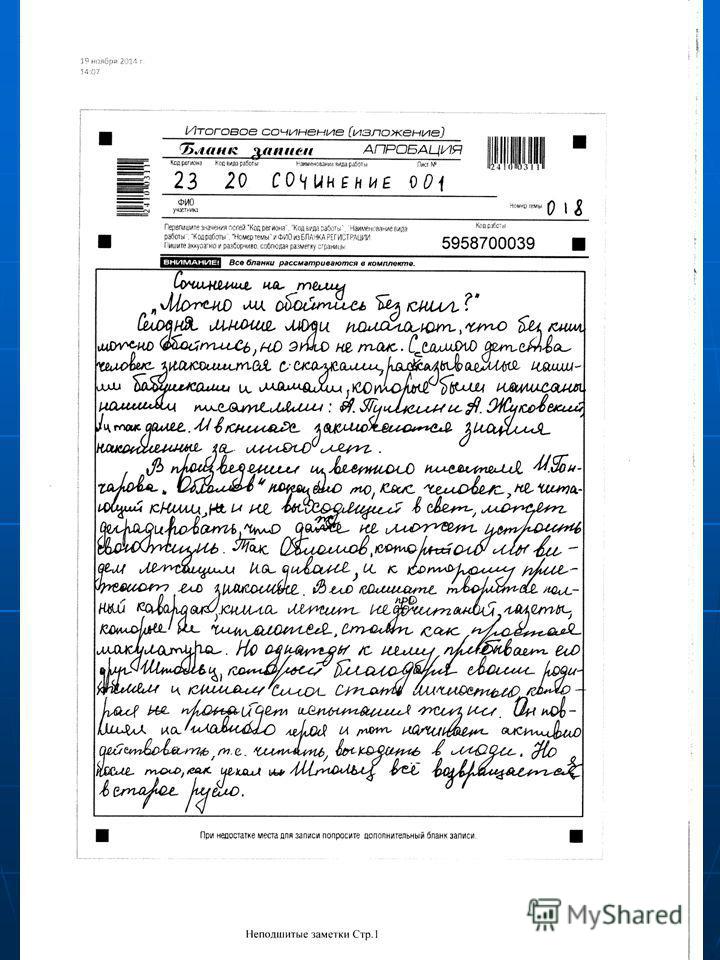 19 ноября 2014 г.
14:07
Итоговое сочинение (изложение)
Бланк записи АПРОБАЦИЯ
Код региона Код вида работы Наименование вида работы Лист №
23 20 СОЧИНЕНИЕ 001
2410 0311
2410 0311
ФИО
участника
Номер темы 018
Перепишите значения полей "Код региона", "Код вида работы", "Наименование вида
работы", "Код работы", "Номер темы" и ФИО из БЛАНКА РЕГИСТРАЦИИ.
Пишите аккуратно и разборчиво, соблюдая разметку страницы.
Код работы
5958700039
ВНИМАНИЕ! Все бланки рассматриваются в комплекте.
Сочинение на тему
„Можно ли обойтись без книг?"
Сегодня многие люди полагают, что без книг
можно обойтись, но это не так. С самого детства
человек знакомится с сказками, рассказываемые наши-
ми бабушками и мамами, которые были написаны
нашими писателями: А. Пушкин и А. Жуковский,
и так далее. И в книгах заключаются знания
накопленные за много лет.
В произведении известного писателя И. Гон-
чарова „Обломов" показано то, как человек, не чита-
ющий книги, и не выходящий в свет, может
деградировать, что даже не может устроить
свою жизнь. Так Обломов, которого мы ви-
дем лежащим на диване, и к которому прие-
жают его знакомые. В его комнате творится пол-
ный кавардак, книга лежит недопрочитаной, газеты,
которые не читаются, стоят как простая
макулатура. Но однажды к нему прибывает его
друг Штольц, который благодаря своим роди-
телем и книгам смог стать личностью, кото-
рая не пройдет испытания жизни. Он пов-
лиял на главного героя и тот начинает активно
действовать, т.е. читать, выходить в люди. Но
после того, как уехал Штольц всё возвращается
в старое русло.
При недостатке места для записи попросите дополнительный бланк записи.
Неподшитые заметки Стр.1
MyShared